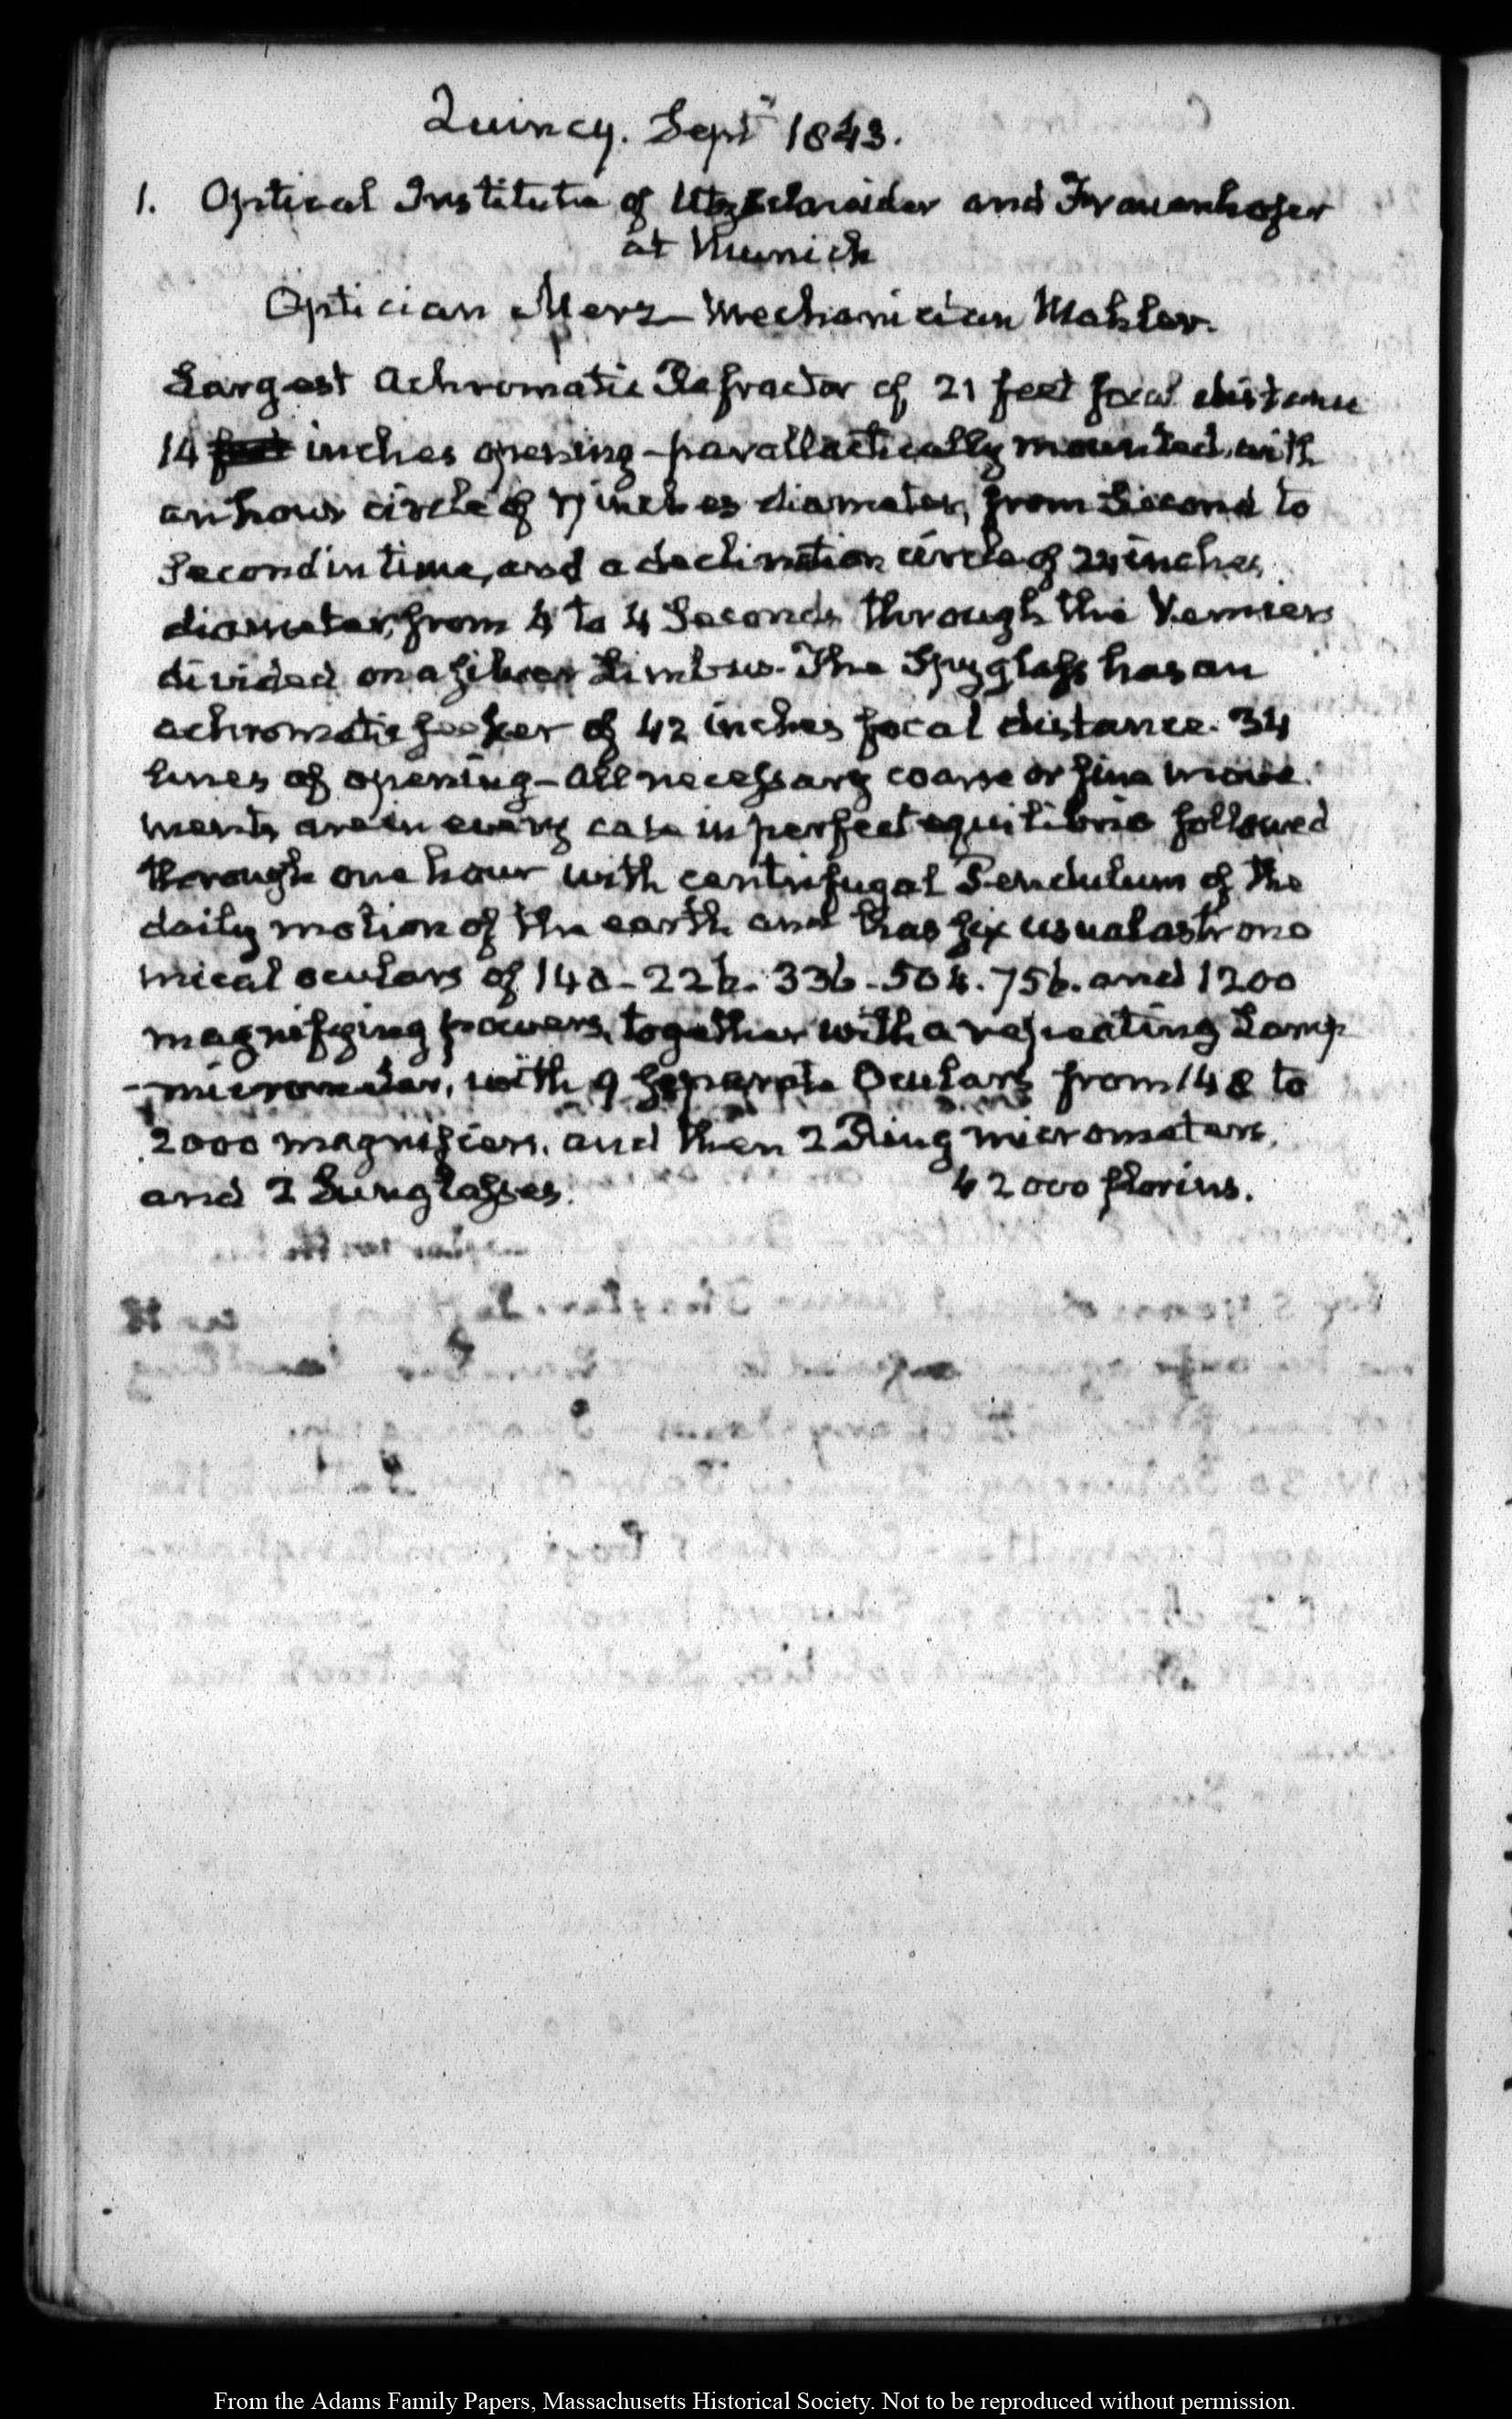 Quincy. Septr 1843.
1. Optical Institute of Utzschneider and Frauenhofer
at Munich
Optician Merz – Mechanician Mahler.
Largest Achromatic Refractor of 21 feet focal distance
14 feet inches opening – parallactically mounted, with
an hour circle of inches diameter, from Second to
Second in time, and a declination circle of 24 inches
diameter, from 4 to 4 Seconds through the Verniers
divided on a silver Limbus. The Spyglass has an
achromatic seeker of 42 inches focal distance. 34
lines of opening – All necessary coarse or fine move
ments are in every case in perfect equilibrio followed
through one hour with centrifugal Pendulum of the
daily motion of the earth and has six usual astrono
mical oculars of 140 - 226. 336 - 504. 756. and 1200
magnifying powers, together with a repeating Lamp
-micrometer, with 9 separate Oculars from 148 to
2000 magnifiers. and then 2 Ring micrometers,
and 2 Sunglasses. 42000 florins.
From the Adams Family Papers, Massachusetts Historical Society. Not to be reproduced without permission.